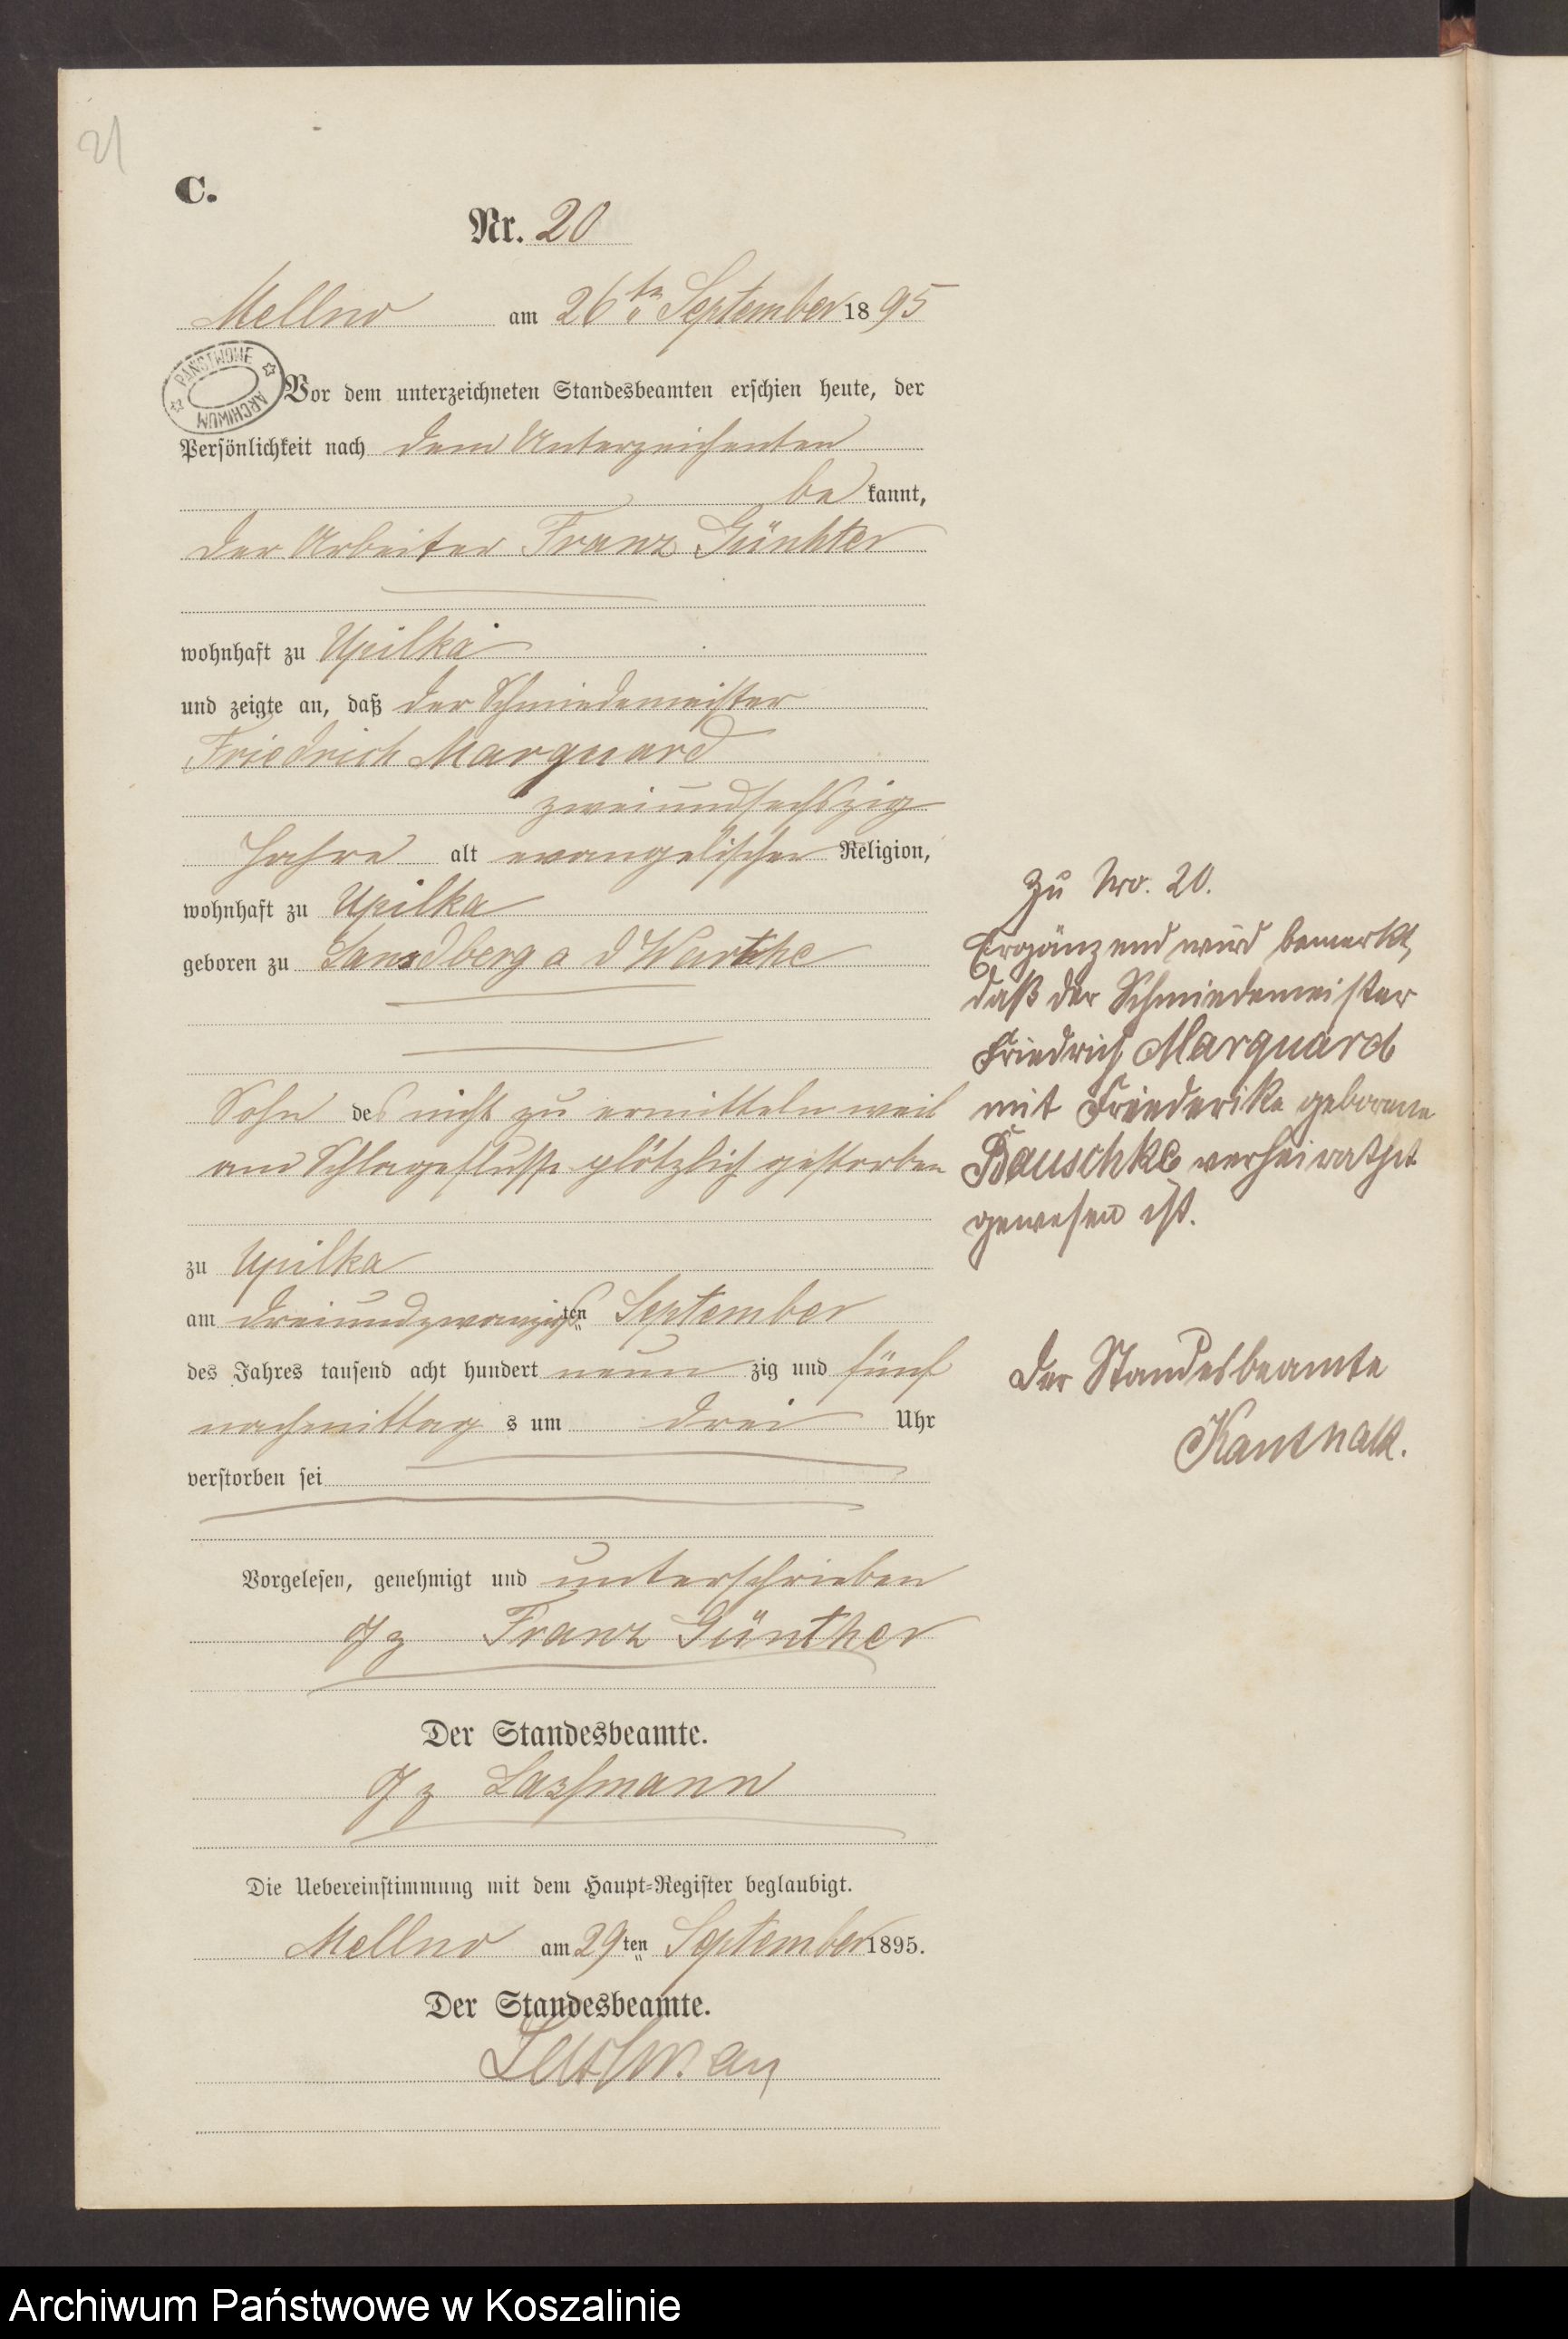 21
C.
Nr. 20
Mellno am 26ten September 1895
PAŃSTWOWE ARCHIWUM
Vor dem unterzeichneten Standesbeamten erschien heute, der
Persönlichkeit nach dem Unterzeichneten
be kannt,
der Arbeiter Franz Günhter
wohnhaft zu Upilka
und zeigte an, daß der Schmiedemeister
Friedrich Marquard
zweiundsechszig
Jahre alt evangelischer Religion,
wohnhaft zu Upilka
geboren zu Landberg a d Warthe
Sohn des nicht zu ermitteln weil
am Schlagflusse plötzlich gestorben
zu Upilka
am dreiundzwanzigsten September
des Jahres tausend acht hundert neun zig und fünf
nachmittag s um drei Uhr
verstorben sei
Vorgelesen, genehmigt und unterschrieben
gz Franz Günther
Der Standesbeamte.
gz
Die Uebereinstimmung mit dem Haupt-Register beglaubigt.
Mellno am 29ten September 1895.
Der Standesbeamte.
Zu Nro. 20.
Ergänzend wird bemerkt,
daß der Schmiedemeister
Friedrich Marquard
mit Friederike geborene
Bauschke verheirathet
gewesen ist.
Der Standesbeamte
Archiwum Państwowe w Koszalinie